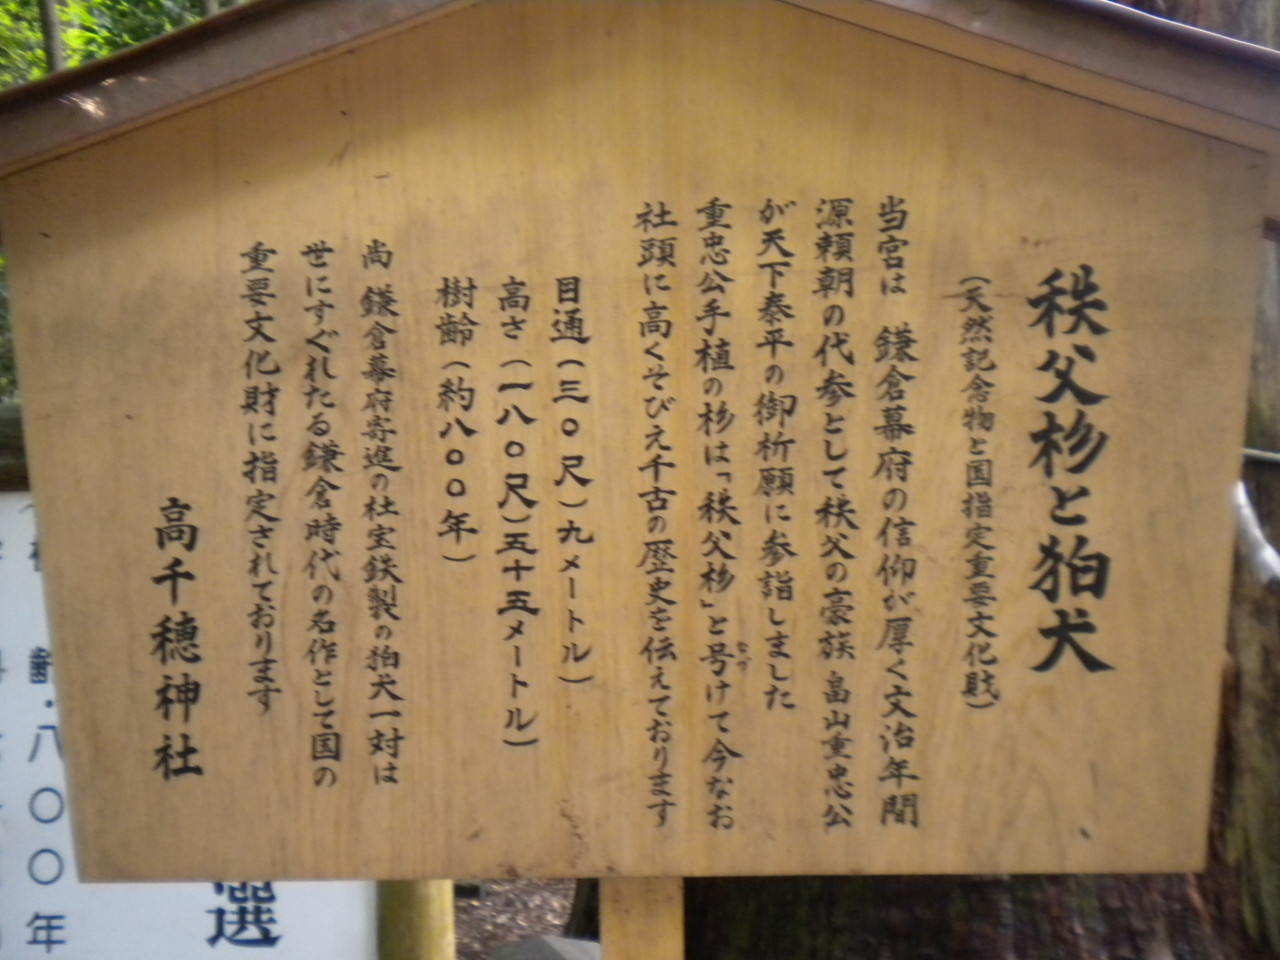 秩父杉と狛犬
(天然記念物と国指定重要文化財)
当宮は 鎌倉幕府の信仰が厚く文治年間
源頼朝の代参として秩父の豪族 畠山重忠公
が天下泰平の御祈願に参詣しました
重忠公手植の杉は「秩父杉」と号けて今なお
なづ
社頭に高くそびえ千古の歴史を伝えております
目通(三〇尺)九メートル)
高さ(一八〇尺)五十五メートル)
樹齢(約八〇〇年)
尚 鎌倉幕府寄進の社宝鉄製の狛犬一対は
世にすぐれたる鎌倉時代の名作として国の
重要文化財に指定されております
高千穂神社
選
齢・八〇〇年